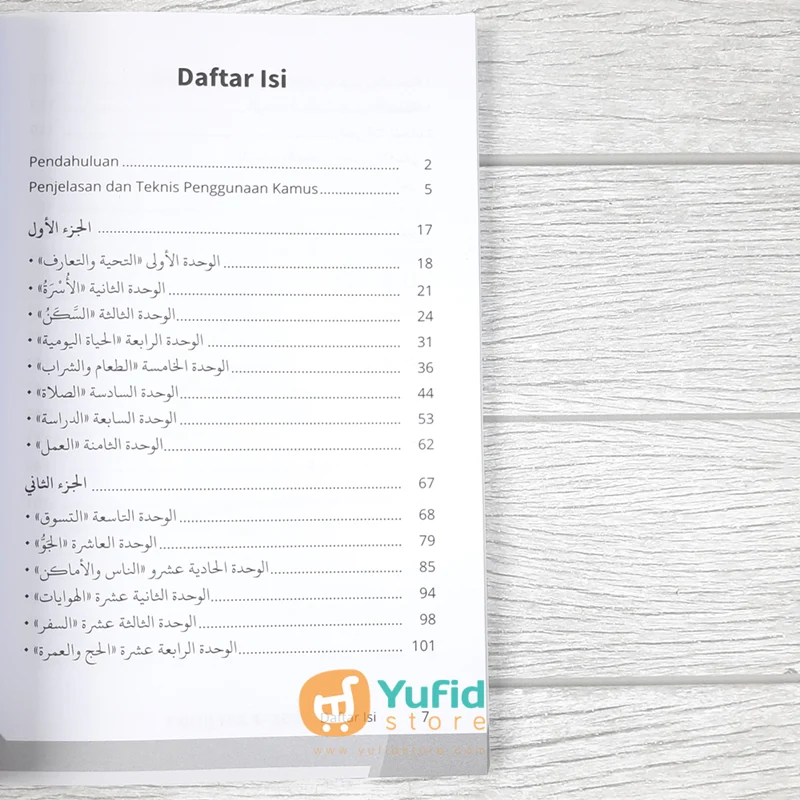 Daftar Isi
Pendahuluan ........ 2
Penjelasan dan Teknis Penggunaan Kamus ........ 5
الجزء الأول ........ 17
• الوحدة الأولى «التحية والتعارف» ........ 18
• الوحدة الثانية «الأُسْرَةُ» ........ 21
• الوحدة الثالثة «السَّكَنُ» ........ 24
• الوحدة الرابعة «الحياة اليومية» ........ 31
• الوحدة الخامسة «الطعام والشراب» ........ 36
• الوحدة السادسة «الصلاة» ........ 44
• الوحدة السابعة «الدراسة» ........ 53
• الوحدة الثامنة «العمل» ........ 62
الجزء الثاني ........ 67
• الوحدة التاسعة «التسوق» ........ 68
• الوحدة العاشرة «الجَوُّ» ........ 79
• الوحدة الحادية عشرو «الناس والأماكن» ........ 85
• الوحدة الثانية عشرة «الهوايات» ........ 94
• الوحدة الثالثة عشرة «السفر» ........ 98
• الوحدة الرابعة عشرة «الحج والعمرة» ........ 101
Yufid
store
Daftar Isi 7
www.yufidstore.com